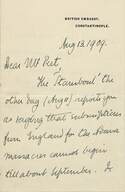 BRITISH EMBASSY,
CONSTANTINOPLE.
Aug 12. 1909.
Dear Mr Peet,
The Stamboul the
other day (Aug 10) reports you
as saying that subscriptions
from England for the Adana
massacre cannot begin
till about September. Is